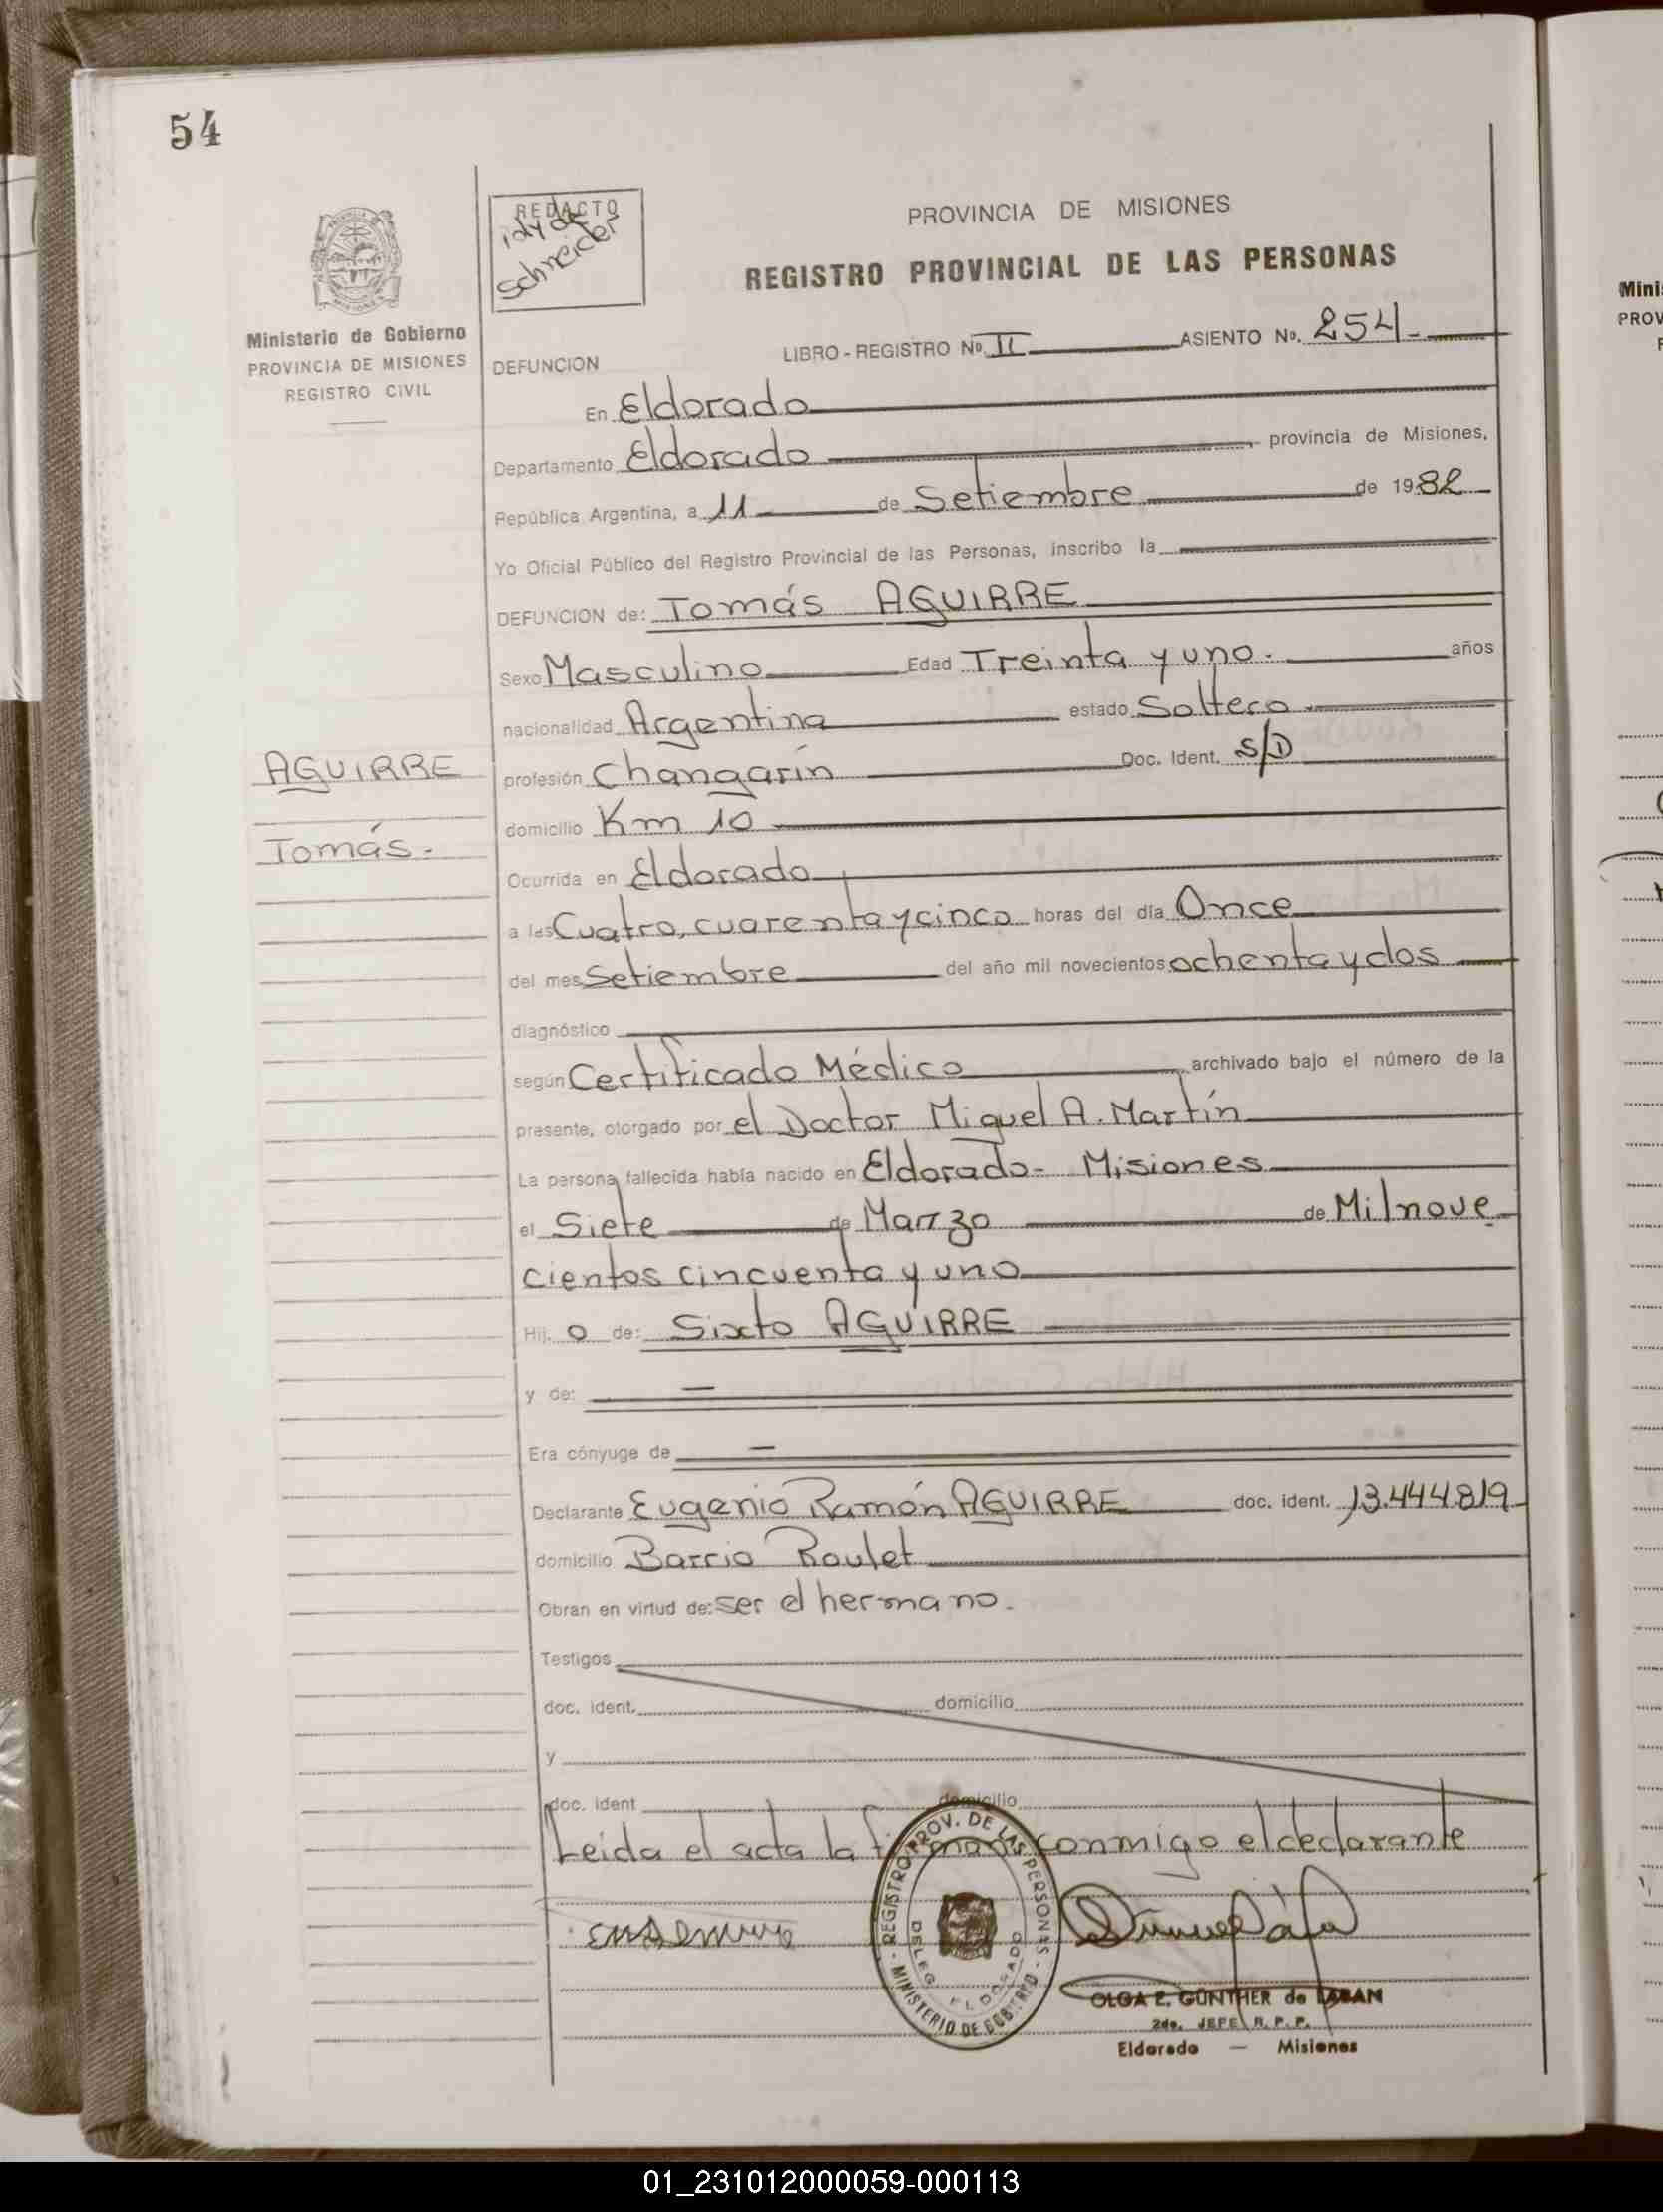 54
REDACTO
Schneider
PROVINCIA DE MISIONES
REGISTRO PROVINCIAL DE LAS PERSONAS
Ministerio de Gobierno
PROVINCIA DE MISIONES
REGISTRO CIVIL
LIBRO - REGISTRO No. II ASIENTO No. 254-
DEFUNCION
En Eldorado
Departamento Eldorado, provincia de Misiones,
República Argentina, a 11 de Setiembre de 1982
Yo Oficial Público del Registro Provincial de las Personas, inscribo la
DEFUNCION de: Tomás AGUIRRE
Sexo Masculino Edad Treinta y uno. años
nacionalidad Argentina estado Soltero
AGUIRRE
Tomás.
profesión Changarín Doc. Ident. S/D
domicilio Km 10
Ocurrida en Eldorado
a las Cuatro, cuarenta y cinco horas del día Once
del mes Setiembre del año mil novecientos ochenta y dos
diagnóstico
según Certificado Médico archivado bajo el número de la
presente, otorgado por el Doctor Miguel A. Martín
La persona fallecida había nacido en Eldorado - Misiones
el Siete de Marzo de Milnove
cientos cincuenta y uno
Hij o de: Sixto AGUIRRE
y de: —
Era cónyuge de —
Declarante Eugenio Ramón AGUIRRE doc. ident. 13.444.819
domicilio Barrio Roulet
Obran en virtud de: ser el hermano.
Testigos
doc. ident. domicilio
y
doc. ident domicilio
Leida el acta la firma conmigo el declarante
REGISTRO PROV. DE LAS PERSONAS - MINISTERIO DE GOBIERNO -
DELEG. ELDORADO
OLGA E. GUNTHER de LABAN
2do. JEFE R. P. P.
Eldorado — Misiones
Mini
PROV
01_231012000059-000113